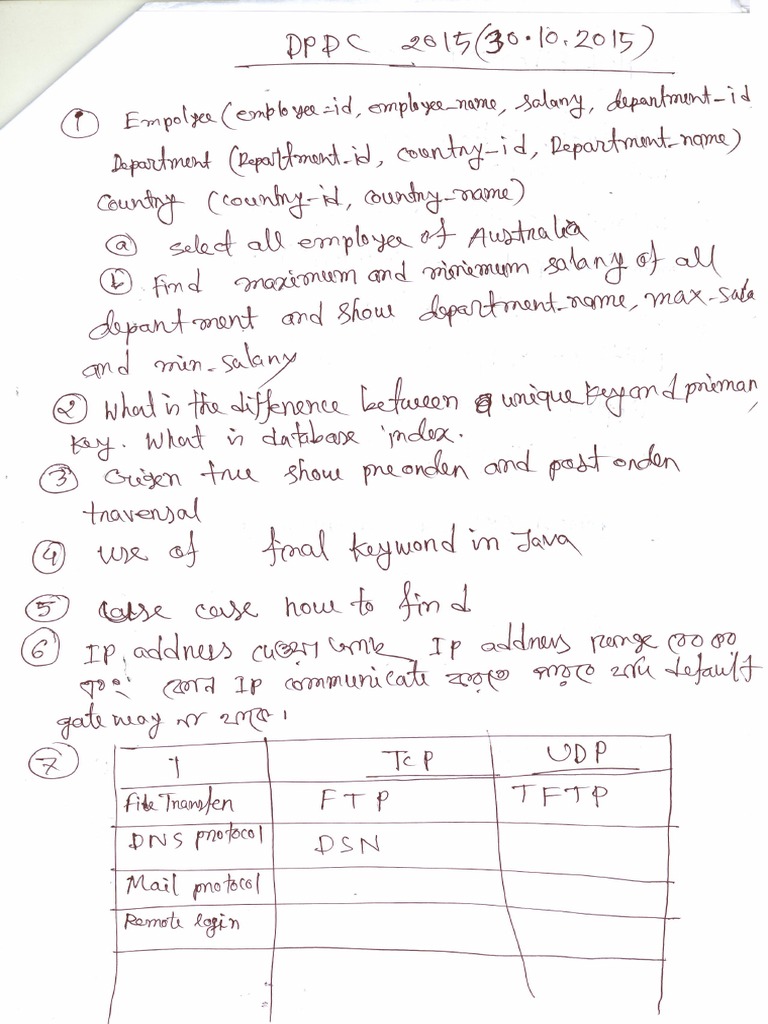 DPDC 2015 (30.10.2015)
① Empolyee (employee-id, employee_name, salary, department-id
Department (Department-id, country-id, Department-name)
Country (country-id, country-name)
ⓐ select all employee of Australia
ⓑ Find maximum and minimum salary of all
department and show department-name, max-sala
and min-salary
② What is the difference between unique key and primary
key. What is database index.
③ Given tree show preorder and post order
traversal
④ use of final keyword in Java
⑤ case how to find
⑥ IP address দেওয়া IP address range কোন কোন
এবং কোন IP communicate করতে পারবে যদি default
gateway না থাকে।
⑦ TCP UDP
File Transfer FTP TFTP
DNS protocol DSN
Mail protocol
Remote login